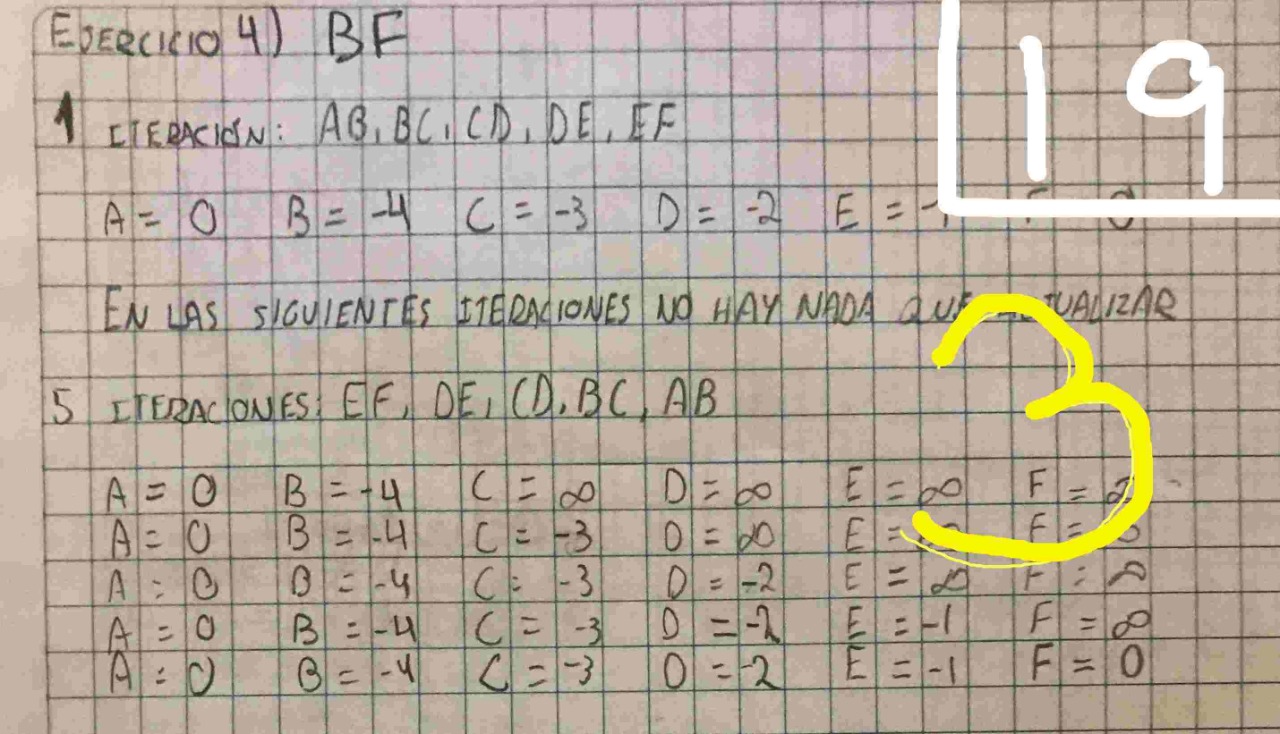 EJERCICIO 4) BF
19
1 ITERACIÓN: AB, BC, CD, DE, EF
A = 0 B = -4 C = -3 D = -2 E = F 0
EN LAS SIGUIENTES ITERACIONES NO HAY NADA
3
5 ITERACIONES: EF, DE, CD, BC, AB
A = 0 B = -4 C = ∞ D = ∞ E = ∞ F =
A = 0 B = -4 C = -3 D = ∞ E = F =
A = 0 B = -4 C = -3 D = -2 E = ∞ F = ∞
A = 0 B = -4 C = -3 D = -2 E = -1 F = ∞
A = 0 B = -4 C = -3 D = -2 E = -1 F = 0